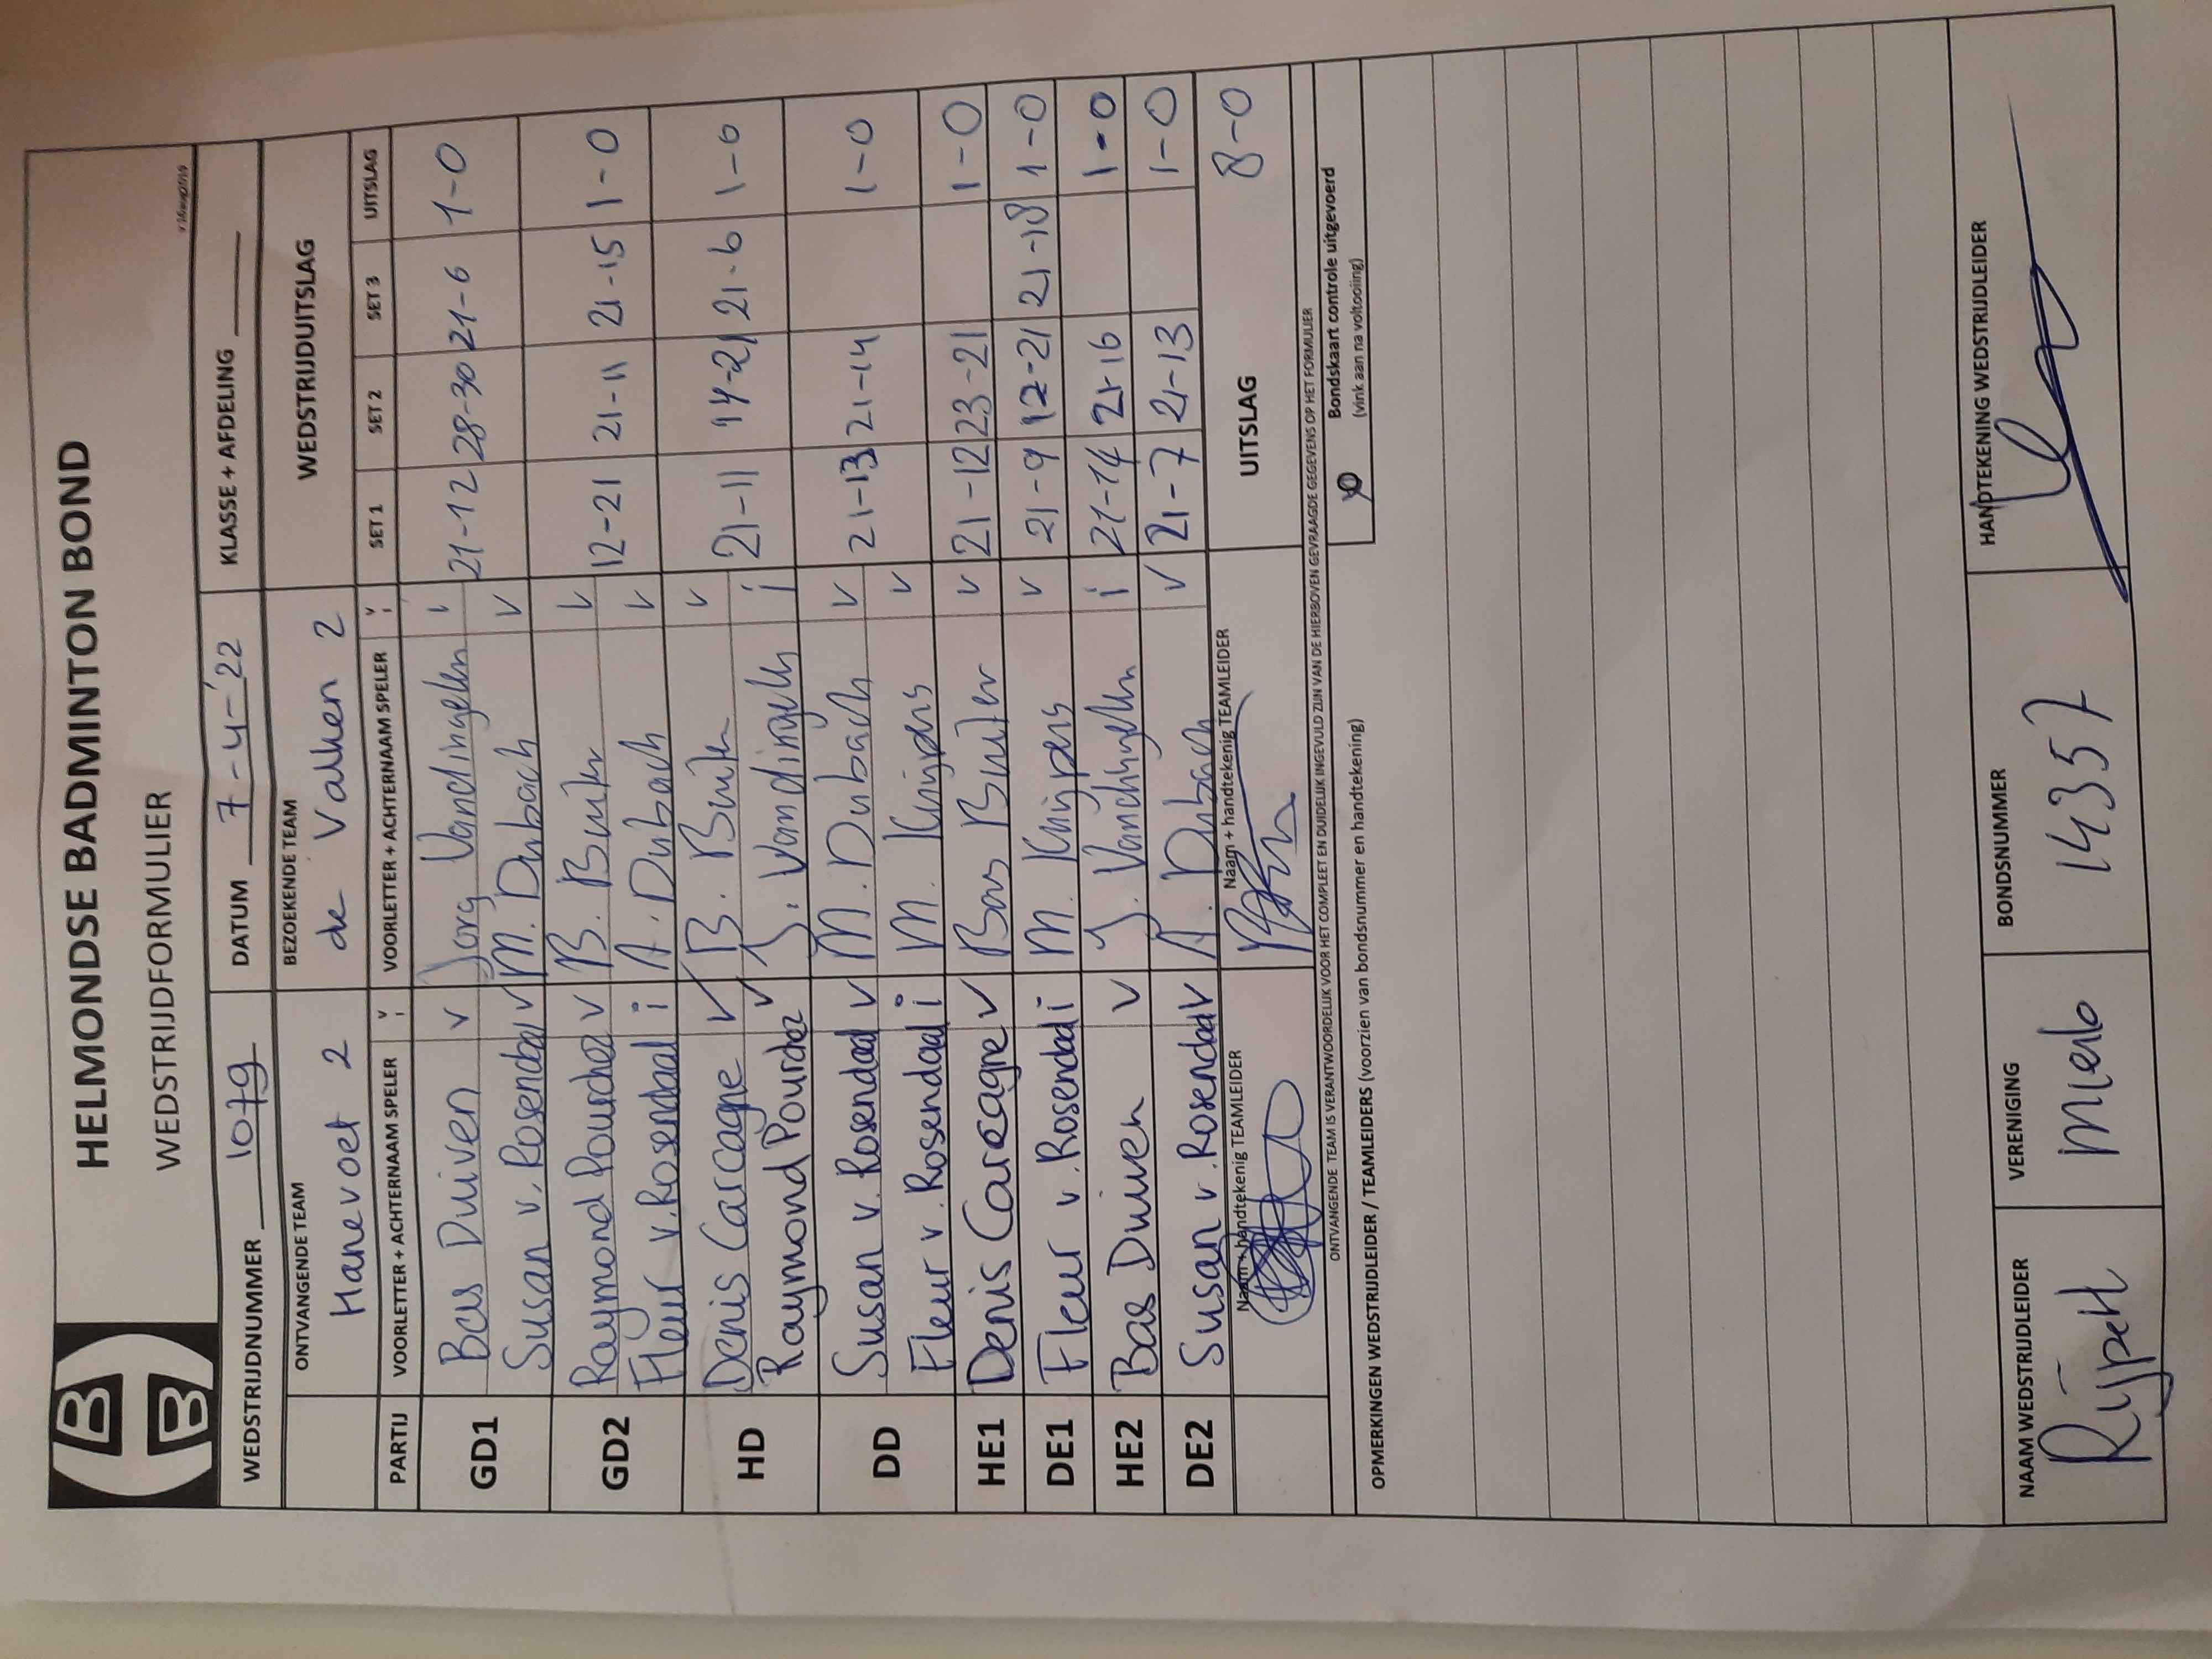 HELMONDSE BADMINTON BOND
WEDSTRIJDFORMULIER
WEDSTRIJDNUMMER 1079 DATUM 7-4-'22 KLASSE + AFDELING
ONTVANGENDE TEAM BEZOEKENDE TEAM WEDSTRIJDUITSLAG
Hanevoet 2 de Valken 2
PARTIJ VOORLETTER + ACHTERNAAM SPELER v i VOORLETTER + ACHTERNAAM SPELER v i SET 1 SET 2 SET 3 UITSLAG
GD1 Bas Duiven v Jorg Vandingelen v 21-12 28-30 21-6 1-0
Susan v. Rosendaal v M. Dubach v
GD2 Raymond Pourchez v B. Buiter v 12-21 21-11 21-15 1-0
Fleur v. Rosendaal i A. Dubach v
HD Denis Carcagne v B. Buiter v 21-11 14-21 21-6 1-0
Raymond Pourchez v J. Vandingelen i
DD Susan v. Rosendaal v M. Dubach v 21-13 21-14 1-0
Fleur v. Rosendaal i M. Kuijpers v
HE1 Denis Carcagne v Bas Buiter v 21-12 23-21 1-0
DE1 Fleur v. Rosendaal i M. Kuijpers v 21-9 12-21 21-18 1-0
HE2 Bas Duiven v J. Vandingelen i 21-14 21-16 1-0
DE2 Susan v. Rosendaal v A. Dubach v 21-7 21-13 1-0
Naam + handtekenig TEAMLEIDER Naam + handtekenig TEAMLEIDER UITSLAG 8-0
ONTVANGENDE TEAM IS VERANTWOORDELIJK VOOR HET COMPLEET EN DUIDELIJK INGEVULD ZIJN VAN DE HIERBOVEN GEVRAAGDE GEGEVENS OP HET FORMULIER
Bondskaart controle uitgevoerd
(vink aan na voltooiing)
OPMERKINGEN WEDSTRIJDLEIDER / TEAMLEIDERS (voorzien van bondsnummer en handtekening)
NAAM WEDSTRIJDLEIDER VERENIGING BONDSNUMMER HANDTEKENING WEDSTRIJDLEIDER
Rijpert Mierlo 14357